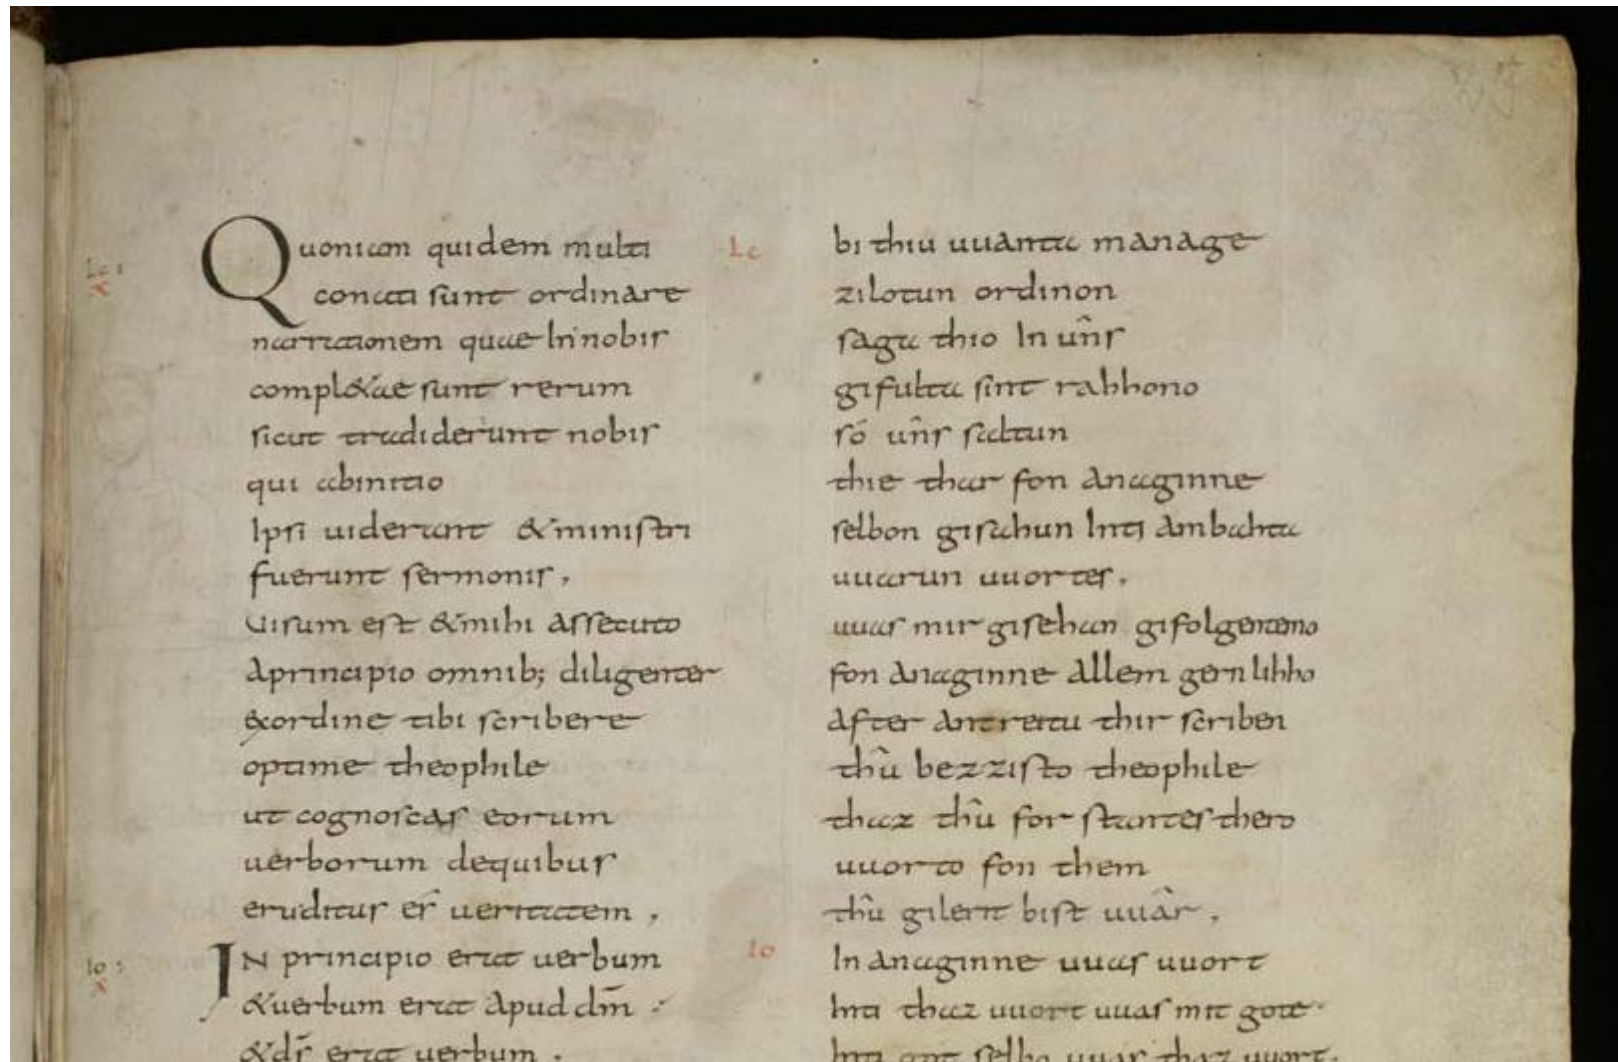 Lc 1
X
Quoniam quidem multi
conati sunt ordinare
narrationem quae In nobis
compl&ae sunt rerum
sicut tradiderunt nobis
qui abinitio
Ipsi uiderunt &ministri
fuerunt sermonis,
Uisum est &mihi assecuto
aprincipio omnib; diligenter
exordine tibi scribere
optime theophile
ut cognoscas eorum
uerborum dequibus
eruditus es̄ ueritatem,
Io 1
X
IN principio erat uerbum
&uerbum erat apud dm̄
&ds̄ erat uerbum.
Lc
bi thiu uuanta manage
zilotun ordinon
saga thio In ûns
gifulta sint rahhono
só ûns saltun
thie thar fon anaginne
selbon gisahun Inti ambahta
uuarun uuortes,
uuas mir gisehan gifolgentemo
fon anaginne allem gernlihho
after antreitu thir scriben
thû bezzisto theophile
thaz thû forstantes thero
uuorto fon them
thû gilerit bist uuâr,
Io
In anaginne uuas uuort
Inti thaz uuort uuas mit gote
Inti got selbo uuas thaz uuort.